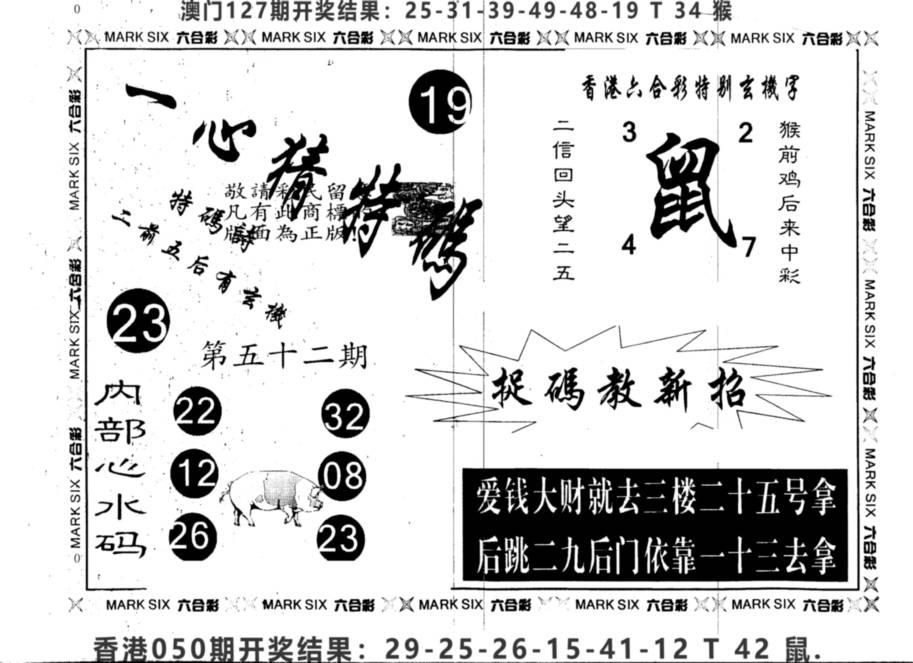 澳门127期开奖结果：25-31-39-49-48-19 T 34 猴
MARK SIX 六合彩 MARK SIX 六合彩 MARK SIX 六合彩 MARK SIX 六合彩 MARK SIX 六合彩
MARK SIX 六合彩 MARK SIX 六合彩 MARK SIX 六合彩
一心猜特碼
19
敬請彩民留
凡有此商標
版面為正版!
特碼詩
二前五后有玄機
23
第五十二期
内部心水码
22 32
12 08
26 23
香港六合彩特别玄機字
二信回头望二五
3 2
鼠
4 7
猴前鸡后来中彩
捉碼教新招
爱钱大财就去三楼二十五号拿
后跳二九后门依靠一十三去拿
MARK SIX 六合彩 MARK SIX 六合彩 MARK SIX 六合彩
MARK SIX 六合彩 MARK SIX 六合彩 MARK SIX 六合彩 MARK SIX 六合彩 MARK SIX 六合彩
香港050期开奖结果：29-25-26-15-41-12 T 42 鼠.